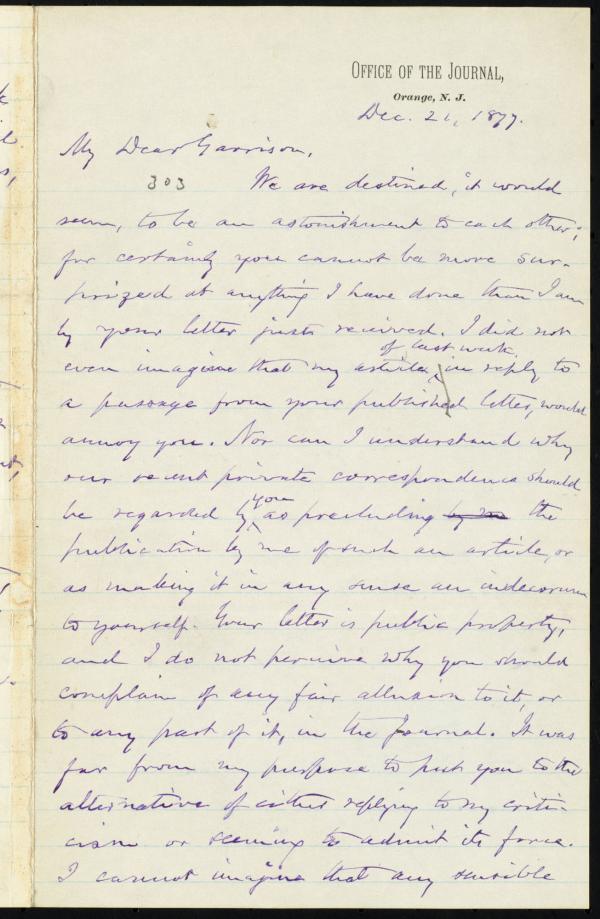 OFFICE OF THE JOURNAL,
Orange, N. J.
Dec. 21, 1877.
My Dear Garrison,
303 We are destined, it would
seem, to be an astonishment to each other;
for certainly you cannot be more sur-
prized at anything I have done than I am
by your letter just received. I did not
of last week
even imagine that my article in reply to
a passage from your published letter, would
annoy you. Nor can I understand why
our recent private correspondence should
you
be regarded by as precluding by me the
publication by me of such an article, or
as making it in any sense an indecorum
to yourself. Your letter is public property,
and I do not perceive why you should
complain of any fair allusion to it, or
to any part of it, in the Journal. It was
far from my purpose to put you to the
alternative of either replying to my criti-
cism or seeming to admit its force.
I cannot imagine that any sensible